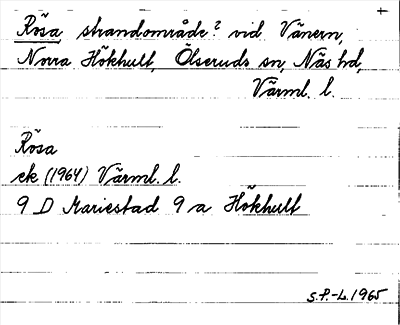 +
Rösa strandområde? vid Vänern,
Norra Hökhult, Ölseruds sn, Näs hd,
Värml. l.
Rösa
ek (1964) Värml. l.
9 D Mariestad 9 a Hökhult
S.P.-L. 1965